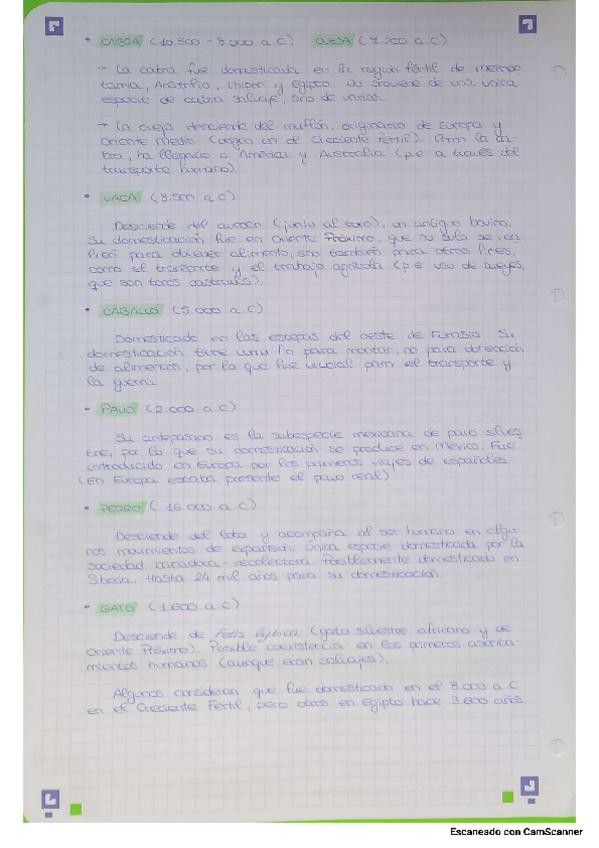 • CABRA (10.500 - 8.000 a.C) - OVEJA (7.200 a.C)
→ La cabra fue domesticada en la región fértil de mesopo
tamia, Anatolia, Chipre y Egipto. No proviene de una única
especie de cabra salvaje, sino de varias.
→ La oveja desciende del muflón, originario de Europa y
Oriente Medio (origen en el Creciente Fértil). Con la ca-
bra, ha llegado a América y Australia (p.e a través del
transporte humano)
• VACA (8.500 a.C)
Desciende del aurocn (junto al toro), un antiguo bovino.
Su domesticación fue en Oriente Próximo, que no solo se
para obtener alimento, sino también para otros fines,
como el transporte y el trabajo agrícola (p.e uso de bueyes,
que son toros castrados).
• CABALLO (5.000 a.C)
Domesticado en las estepas del oeste de Eurasia. Su
domesticación tiene como fin para montar, no para obtención
de alimentos, por lo que fue crucial para el transporte y
la guerra.
• PAVO (2.000 a.C)
Su antepasado es la subespecie mexicana de pavo silves
tre, por lo que su domesticación se produce en México. Fue
introducido en Europa por los primeros viajes de españoles.
(En Europa estaba presente el pavo real)
• PERRO (16.000 a.C)
Desciende del lobo y acompaña al ser humano en algu-
nos movimientos de expansión. Única especie domesticada por la
sociedad cazadora - recolectora. Posiblemente domesticado en
Siberia. Hasta 24 mil años para su domesticación.
• GATO (1.600 a.C)
Desciende de Felis lybica (gato silvestre africano y de
Oriente Próximo). Posible coexistencia en los primeros asenta-
mientos humanos (aunque eran salvajes).
Algunos consideran que fue domesticado en el 8.000 a.C
en el Creciente Fértil, pero otros en Egipto hace 3.600 años.
Escaneado con CamScanner